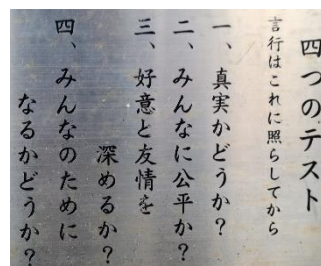 四つのテスト
言行はこれに照らしてから
一、真実かどうか?
二、みんなに公平か?
三、好意と友情を
深めるか?
四、みんなのために
なるかどうか?